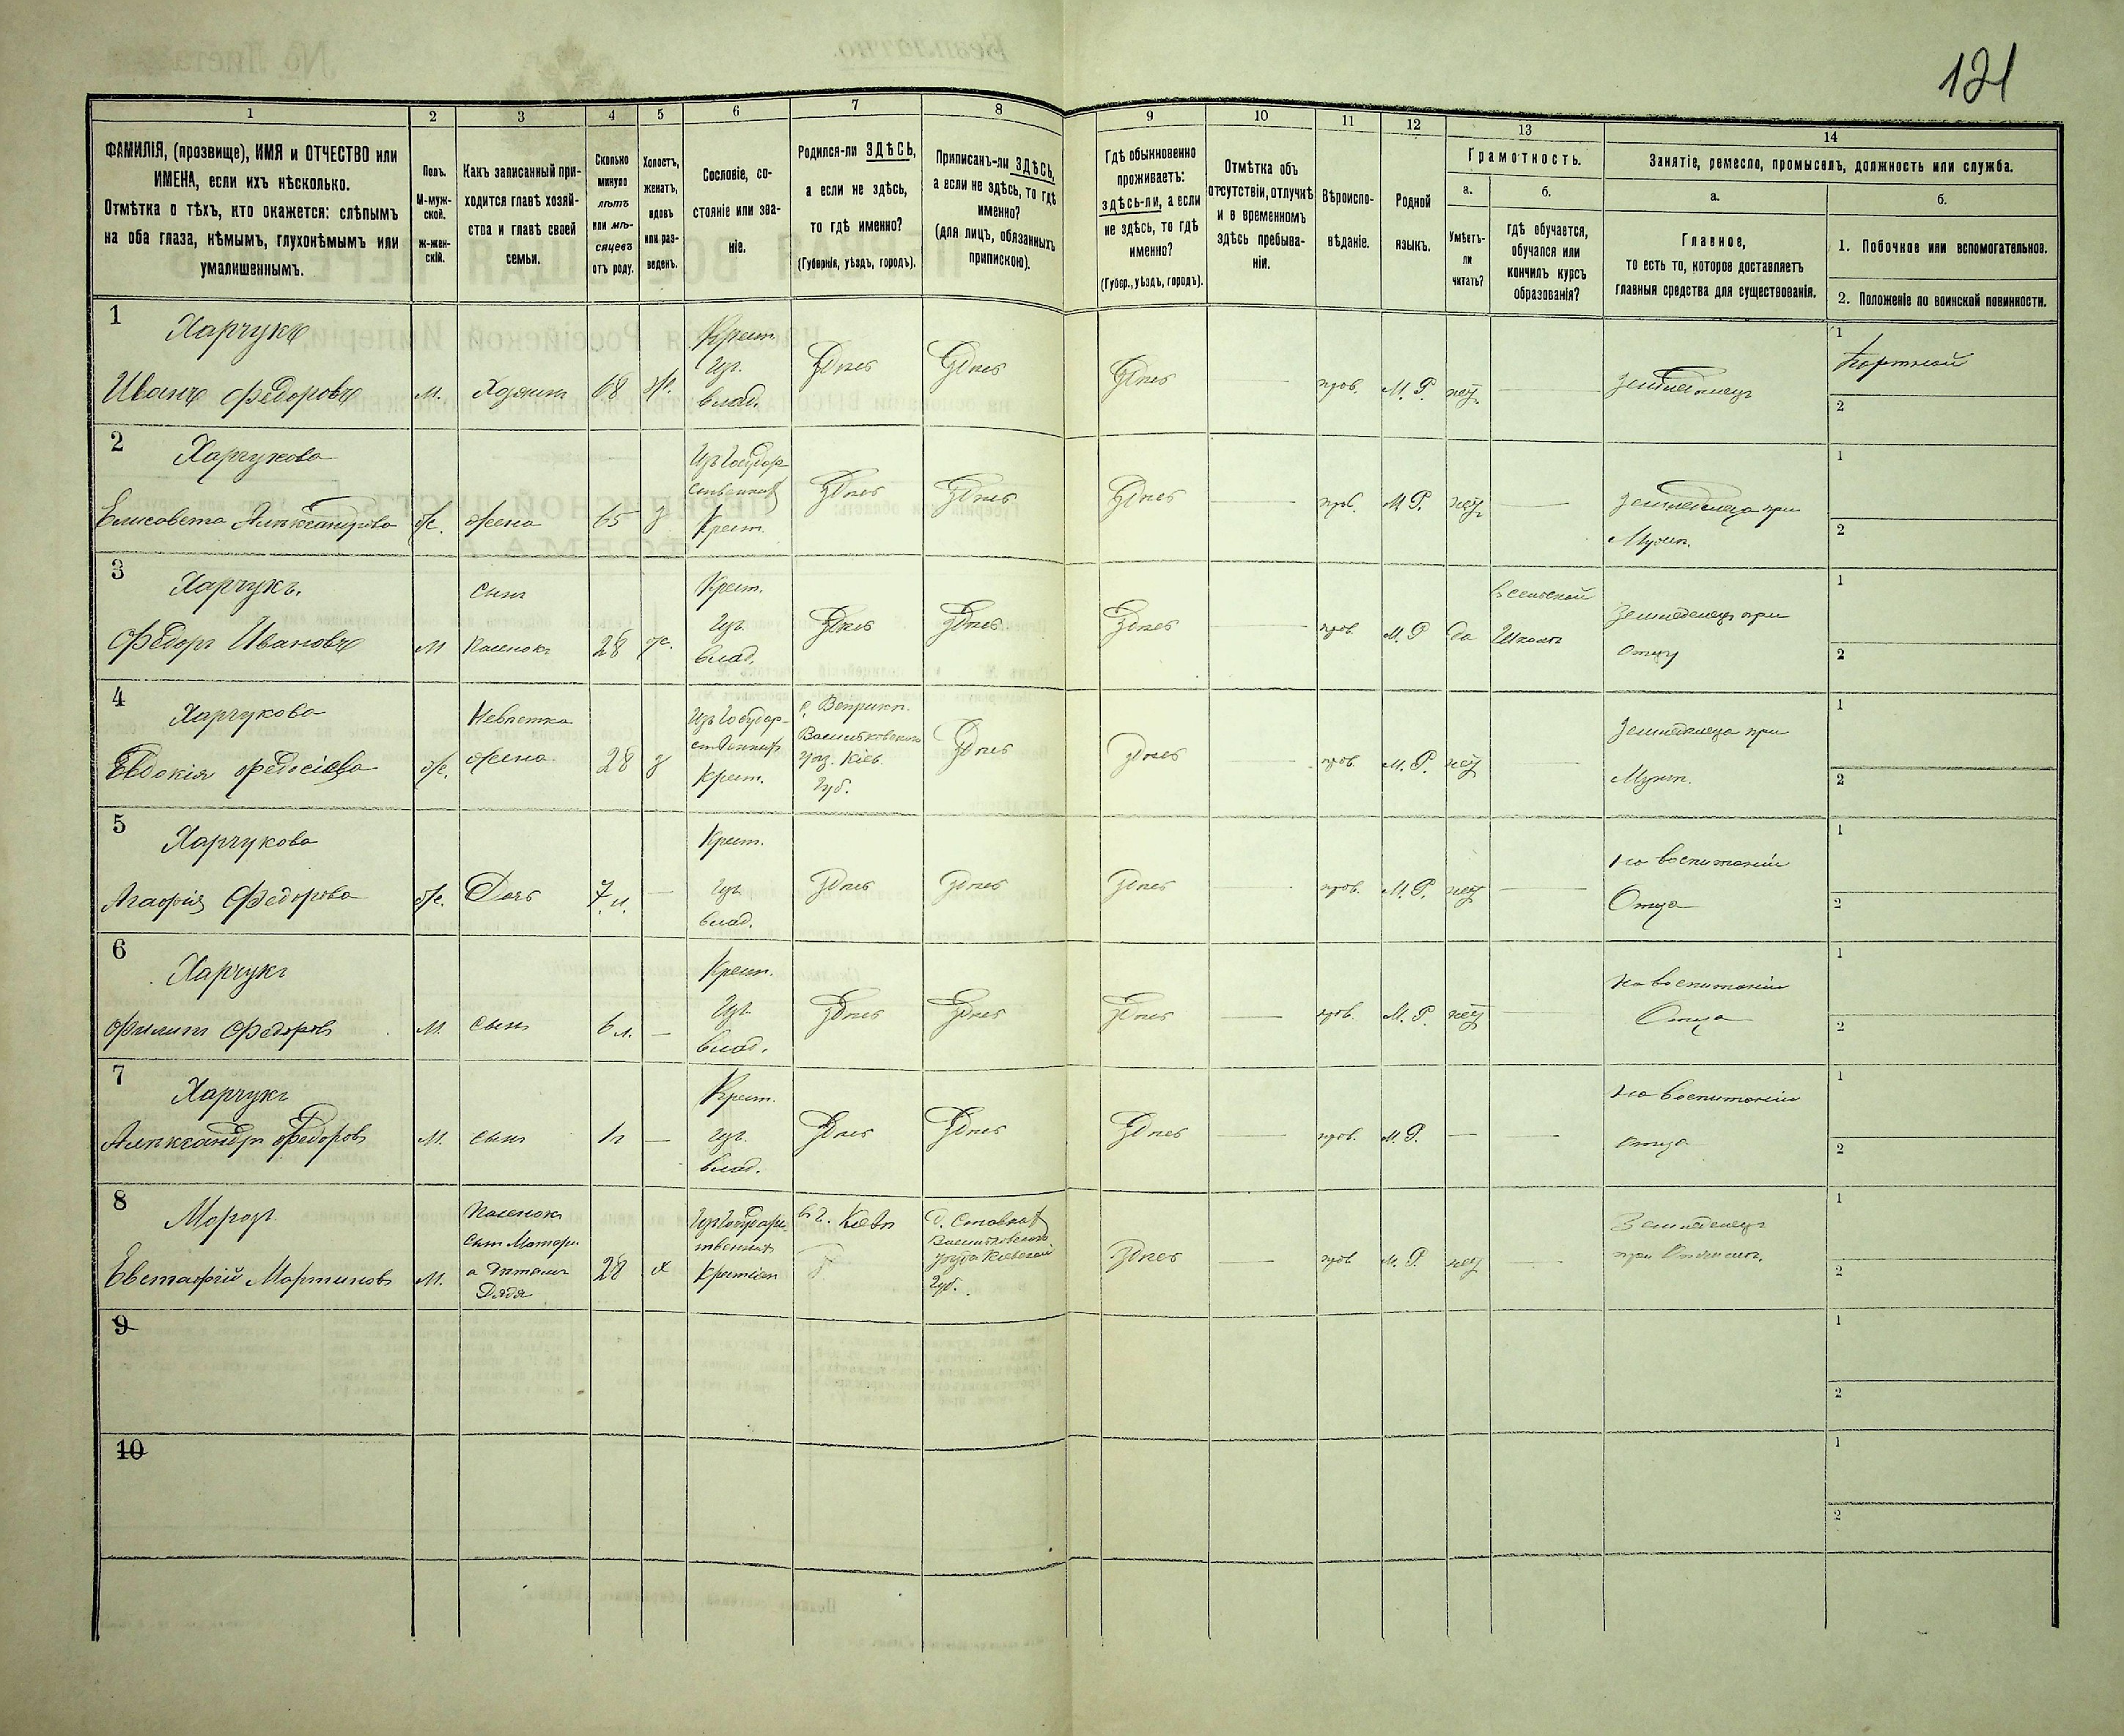 121
1 2 3 4 5 6 7 8 9 10 11 12 13 14
ФАМИЛІЯ, (прозвище), ИМЯ и ОТЧЕСТВО или
ИМЕНА, если ихъ нѣсколько.
Отмѣтка о тѣхъ, кто окажется: слѣпымъ
на оба глаза, нѣмымъ, глухонѣмымъ или
умалишеннымъ.
Полъ.
М-муж-
ской.
ж-жен-
скій.
Какъ записанный при-
ходится главѣ хозяй-
ства и главѣ своей
семьи.
Сколько
минуло
лѣтъ
или мѣ-
сяцевъ
отъ роду.
Холостъ,
женатъ,
вдовъ
или раз-
веденъ.
Сословіе, со-
стояніе или зва-
ніе.
Родился-ли ЗДѢСЬ,
а если не здѣсь,
то гдѣ именно?
(Губернія, уѣздъ, городъ).
Приписанъ-ли ЗДѢСЬ,
а если не здѣсь, то гдѣ
именно?
(для лицъ, обязанныхъ
припискою).
Гдѣ обыкновенно
проживаетъ:
здѣсь-ли, а если
не здѣсь, то гдѣ
именно?
(Губер., уѣздъ, городъ).
Отмѣтка объ
отсутствіи, отлучкѣ
и о временномъ
здѣсь пребыва-
ніи.
Вѣроиспо-
вѣданіе.
Родной
языкъ.
Грамотность.
а.
Умѣетъ-
ли
читать?
б.
гдѣ обучается,
обучался или
кончилъ курсъ
образованія?
Занятіе, ремесло, промыселъ, должность или служба.
а.
Главное,
то есть то, которое доставляетъ
главныя средства для существованія.
б.
1. Побочное или вспомогательное.
2. Положеніе по воинской повинности.
1
Харчукъ
Иванъ Федоровъ
м.
Хозяинъ
68
ж.
Крест.
изъ
влад.
Здѣсь
Здѣсь
Здѣсь
прав.
М. Р.
нѣтъ
Земледѣлецъ
1
Портной
2
2
Харчукова
Елисавета Александрова
ж.
жена
65
з
Изъ Государ
ственныхъ
Крест.
Здѣсь
Здѣсь
Здѣсь
прав.
М. Р.
нѣтъ
Земледѣлица при
Мужѣ.
1
2
3
Харчукъ.
Федоръ Ивановъ
м
Сынъ
Пасынокъ
28
ж.
Крест.
Изъ
влад.
Здѣсь
Здѣсь
Здѣсь
прав.
М. Р
да
В сельской
Школѣ
Земледѣлецъ при
Отцу
1
2
4
Харчукова
Евдокія Федосіева
ж.
Невѣстка
жена
28
з
Изъ Государ-
ственныхъ
Крест.
с. Веприкъ.
Васильковскаго
уѣз. Кіев.
Губ.
Здѣсь
Здѣсь
прав.
М. Р.
нѣтъ
Земледѣлица при
Мужѣ.
1
2
5
Харчукова
Агафія Федорова
ж.
Дочь
7 л.
Крест.
Изъ
влад.
Здѣсь
Здѣсь
Здѣсь
прав.
М. Р.
нѣтъ
На воспитаніи
Отца
1
2
6
Харчукъ
Филипъ Федоровъ
м.
сынъ
6 л.
Крест.
Изъ
влад.
Здѣсь
Здѣсь
Здѣсь
прав.
М. Р.
нѣтъ
На воспитаніи
Отца
1
2
7
Харчукъ
Александръ Федоровъ
м.
сынъ
1 г
Крест.
изъ
влад.
Здѣсь
Здѣсь
Здѣсь
прав.
М. Р.
На воспитаніи
отца
1
2
8
Морозъ
Евстафій Мартиновъ
м.
Пасынокъ
сынъ Матери
а дѣтямъ
Дядя
28
х
Изъ Государ
ственныхъ
Крестьян
въ г. Кіевѣ
Васильковскаго
уѣзда Кіевской
Губ.
Здѣсь
прав
М. Р.
нѣтъ
Земледѣлецъ
при Отчимѣ.
1
2
9
1
2
10
1
2